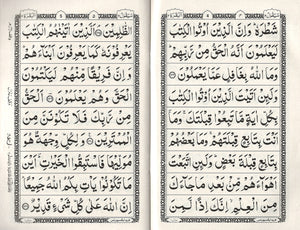 شَطْرَهٗ ؕ وَاِنَّ الَّذِيْنَ اُوْتُوا الْكِتٰبَ
لَيَعْلَمُوْنَ اَنَّهُ الْحَقُّ مِنْ رَّبِّهِمْ ؕ
وَمَا اللّٰهُ بِغَافِلٍ عَمَّا يَعْمَلُوْنَ
وَلَىِٕنْ اَتَيْتَ الَّذِيْنَ اُوْتُوا الْكِتٰبَ
بِكُلِّ اٰيَةٍ مَّا تَبِعُوْا قِبْلَتَكَ ۚ وَمَاۤ
اَنْتَ بِتَابِعٍ قِبْلَتَهُمْ ۚ وَمَا بَعْضُهُمْ
بِتَابِعٍ قِبْلَةَ بَعْضٍ ؕ وَلَىِٕنِ اتَّبَعْتَ
اَهْوَآءَهُمْ مِّنْۢ بَعْدِ مَا جَآءَكَ
مِنَ الْعِلْمِ ۙ اِنَّكَ اِذًا لَّمِنَ
الظّٰلِمِيْنَ اَلَّذِيْنَ اٰتَيْنٰهُمُ الْكِتٰبَ
يَعْرِفُوْنَهٗ كَمَا يَعْرِفُوْنَ اَبْنَآءَهُمْ ؕ
وَاِنَّ فَرِيْقًا مِّنْهُمْ لَيَكْتُمُوْنَ
الْحَقَّ وَهُمْ يَعْلَمُوْنَ اَلْحَقُّ
مِنْ رَّبِّكَ فَلَا تَكُوْنَنَّ مِنَ
الْمُمْتَرِيْنَ وَلِكُلٍّ وِّجْهَةٌ هُوَ
مُوَلِّيْهَا فَاسْتَبِقُوا الْخَيْرٰتِ ؕ اَيْنَ
مَا تَكُوْنُوْا يَاْتِ بِكُمُ اللّٰهُ جَمِيْعًا ؕ
اِنَّ اللّٰهَ عَلٰى كُلِّ شَيْءٍ قَدِيْرٌ